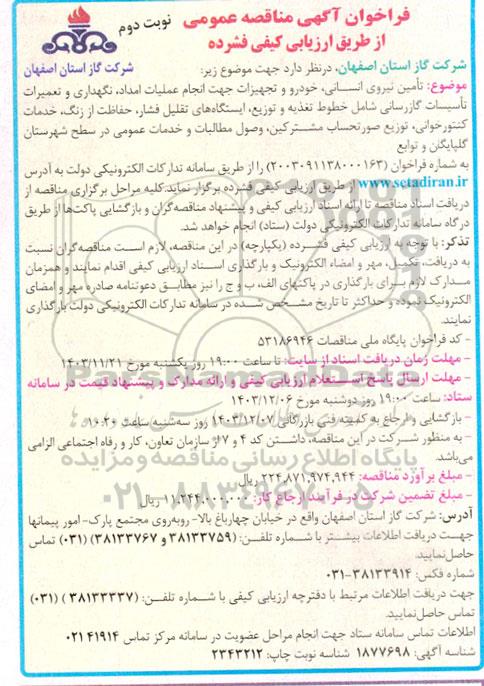 فراخوان آگهی مناقصه عمومی
نوبت دوم
از طریق ارزیابی کیفی فشرده
شرکت گاز استان اصفهان
شرکت گاز استان اصفهان، درنظر دارد جهت موضوع زیر:
موضوع: تأمین نیروی انسانی، خودرو و تجهیزات جهت انجام عملیات امداد، نگهداری و تعمیرات
تأسیسات گازرسانی شامل خطوط تغذیه و توزیع، ایستگاه‌های تقلیل فشار، حفاظت از زنگ، خدمات
کنتورخوانی، توزیع صورتحساب مشترکین، وصول مطالبات و خدمات عمومی در سطح شهرستان
گلپایگان و توابع
به شماره فراخوان (۲۰۰۳۰۹۱۱۳۸۰۰۰۱۶۳) را از طریق سامانه تدارکات الکترونیکی دولت به آدرس
www.setadiran.ir از طریق ارزیابی کیفی فشرده برگزار نماید. کلیه مراحل برگزاری مناقصه از
دریافت اسناد مناقصه تا ارائه اسناد ارزیابی کیفی و پیشنهاد مناقصه‌گران و بازگشایی پاکت‌ها از طریق
درگاه سامانه تدارکات الکترونیکی دولت (ستاد) انجام خواهد شد.
تذکر: با توجه به ارزیابی کیفی فشرده (یکپارچه) در این مناقصه، لازم است مناقصه‌گران نسبت
به دریافت، تکمیل، مهر و امضاء الکترونیک و بارگذاری اسناد ارزیابی کیفی اقدام نمایند و همزمان
مدارک لازم برای بارگذاری در پاکتهای الف، ب و ج را نیز مطابق دعوتنامه صادره مهر و امضای
الکترونیک نموده و حداکثر تا تاریخ مشخص شده در سامانه تدارکات الکترونیکی دولت بارگذاری
نمایند.
- کد فراخوان پایگاه ملی مناقصات ۵۳۱۸۶۹۴۶
- مهلت زمان دریافت اسناد از سایت: تا ساعت ۱۹:۰۰ روز یکشنبه مورخ ۱۴۰۳/۱۱/۲۱
- مهلت ارسال پاسخ استعلام ارزیابی کیفی و ارائه مدارک و پیشنهاد قیمت در سامانه
ستاد: ساعت ۱۹:۰۰ روز دوشنبه مورخ ۱۴۰۳/۱۲/۰۶
- بازگشایی و ارجاع به کمیته فنی بازرگانی ۱۴۰۳/۱۲/۰۷ روز سه‌شنبه ساعت ۱۰:۲۰
- به منظور شرکت در این مناقصه، داشتن کد ۴ و ۷ از سازمان تعاون، کار و رفاه اجتماعی الزامی
می‌باشد.
- مبلغ برآورد مناقصه: ۲۲۴,۸۷۱,۹۷۴,۹۴۴ ریال
- مبلغ تضمین شرکت در فرآیند ارجاع کار: ۱۱,۲۴۴,۰۰۰,۰۰۰ ریال
آدرس: شرکت گاز استان اصفهان واقع در خیابان چهارباغ بالا- روبه‌روی مجتمع پارک- امور پیمانها
جهت دریافت اطلاعات بیشتر با شماره تلفن: (۳۸۱۳۳۷۵۹ و ۳۸۱۳۳۷۶۷) (۰۳۱) تماس
حاصل‌نمایید.
شماره فکس: ۳۸۱۳۳۹۱۴-۰۳۱
جهت دریافت اطلاعات مرتبط با دفترچه ارزیابی کیفی با شماره تلفن: (۳۸۱۳۳۳۳۷) (۰۳۱)
تماس حاصل‌نمایید.
اطلاعات تماس سامانه ستاد جهت انجام مراحل عضویت در سامانه مرکز تماس ۴۱۹۱۴ ۰۲۱
شناسه آگهی: ۱۸۷۷۶۹۸ شناسه نوبت چاپ: ۲۳۴۳۲۱۲
ParsNamadData
پایگاه اطلاع رسانی مناقصه و مزایده
۰۲۱-۸۸۳۴۹۶۷۰-۵